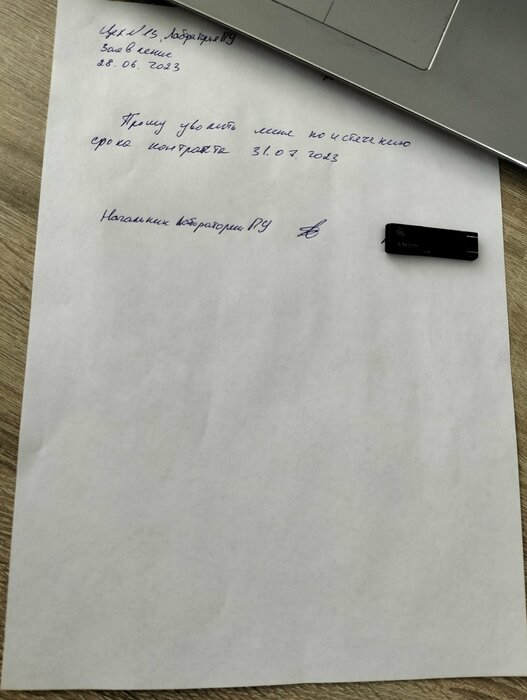 Цех №13, Лаборатория ПУ
Заявление
28.06.2023
Прошу уволить меня по истечению
срока контракта 31.07.2023
Начальник Лаборатории ПУ